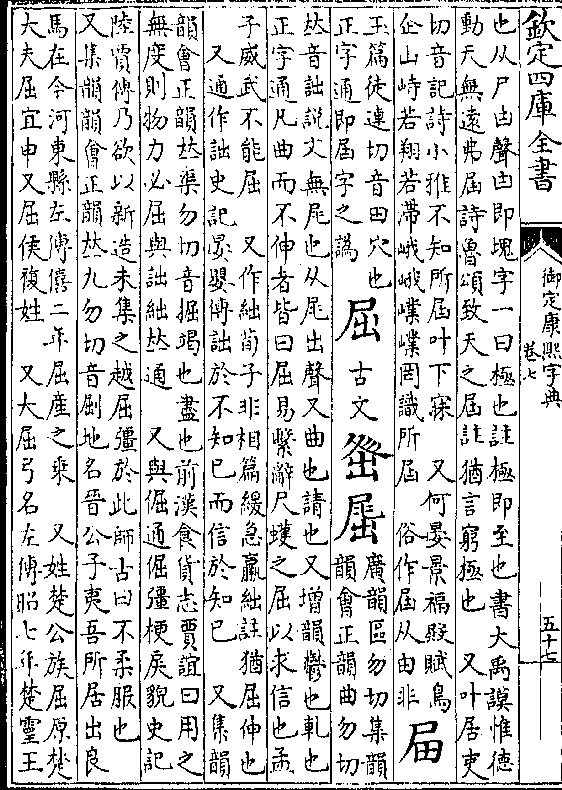 欽定四庫全書
御定康熙字典
卷七
五十七
也从尸凷聲凷即塊字一曰極也註極即至也書大禹謨惟德
動天無遠弗屆詩魯頌致天之屆註猶言窮極也 又叶居吏
切音記詩小雅不知所屆叶下寐 又何晏景福殿賦鳥
企山峙若翔若滯峨峨嶫嶫罔識所屆 俗作届从由非
届
玉篇徒連切音田穴也
正字通即屆字之譌
屈
古文
㞃
𡲬
廣韻區勿切集韻
韻會正韻曲勿切
𠀤音詘說文無尾也从尾出聲又曲也請也又增韻鬱也軋也
正字通凡曲而不伸者皆曰屈易繫辭尺蠖之屈以求信也孟
子威武不能屈 又作絀荀子非相篇緩急嬴絀註猶屈伸也
又通作詘史記晏嬰傳詘於不知己而信於知己 又集韻
韻會正韻𠀤渠勿切音掘竭也盡也前漢食貨志賈誼曰用之
無度則物力必屈與詘絀𠀤通 又與倔通倔彊梗戾貌史記
陸賈傳乃欲以新造未集之越屈彊於此師古曰不柔服也
又集韻韻會正韻𠀤九勿切音劂地名晉公子夷吾所居出良
馬在今河東縣左傳僖二年屈產之乘 又姓楚公族屈原楚
大夫屈宜申又屈侯複姓 又大屈弓名左傳昭七年楚靈王